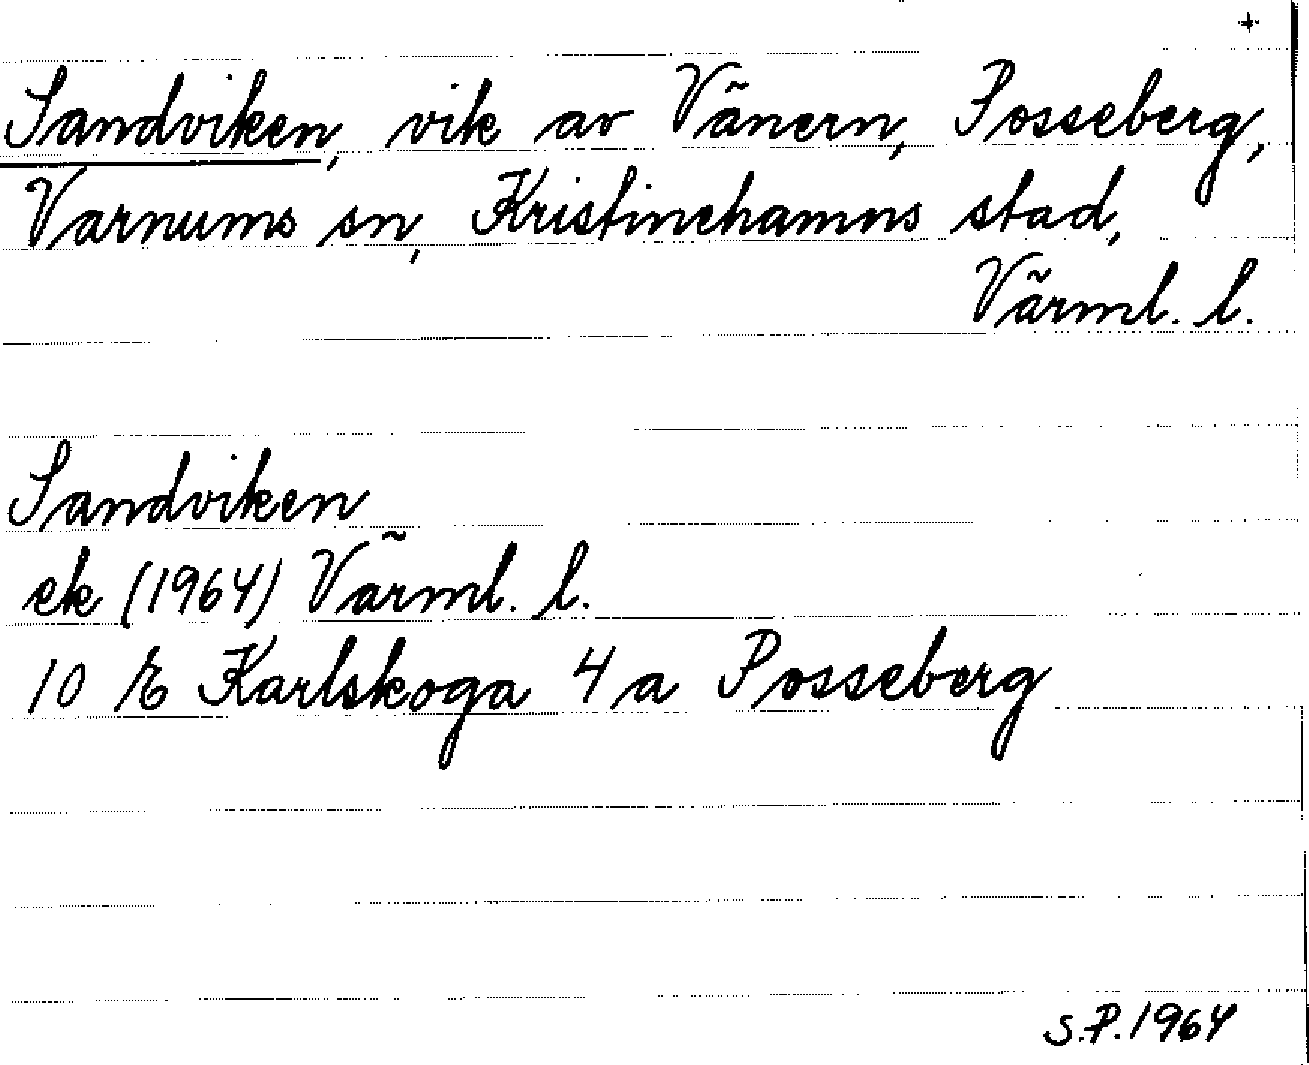 +
Sandviken, vik av Vänern, Posseberg,
Varnums sn, Kristinehamns stad,
Värml. l.
Sandviken
ek (1964) Värml. l.
10 E Karlskoga 4 a Posseberg
S.P. 1964